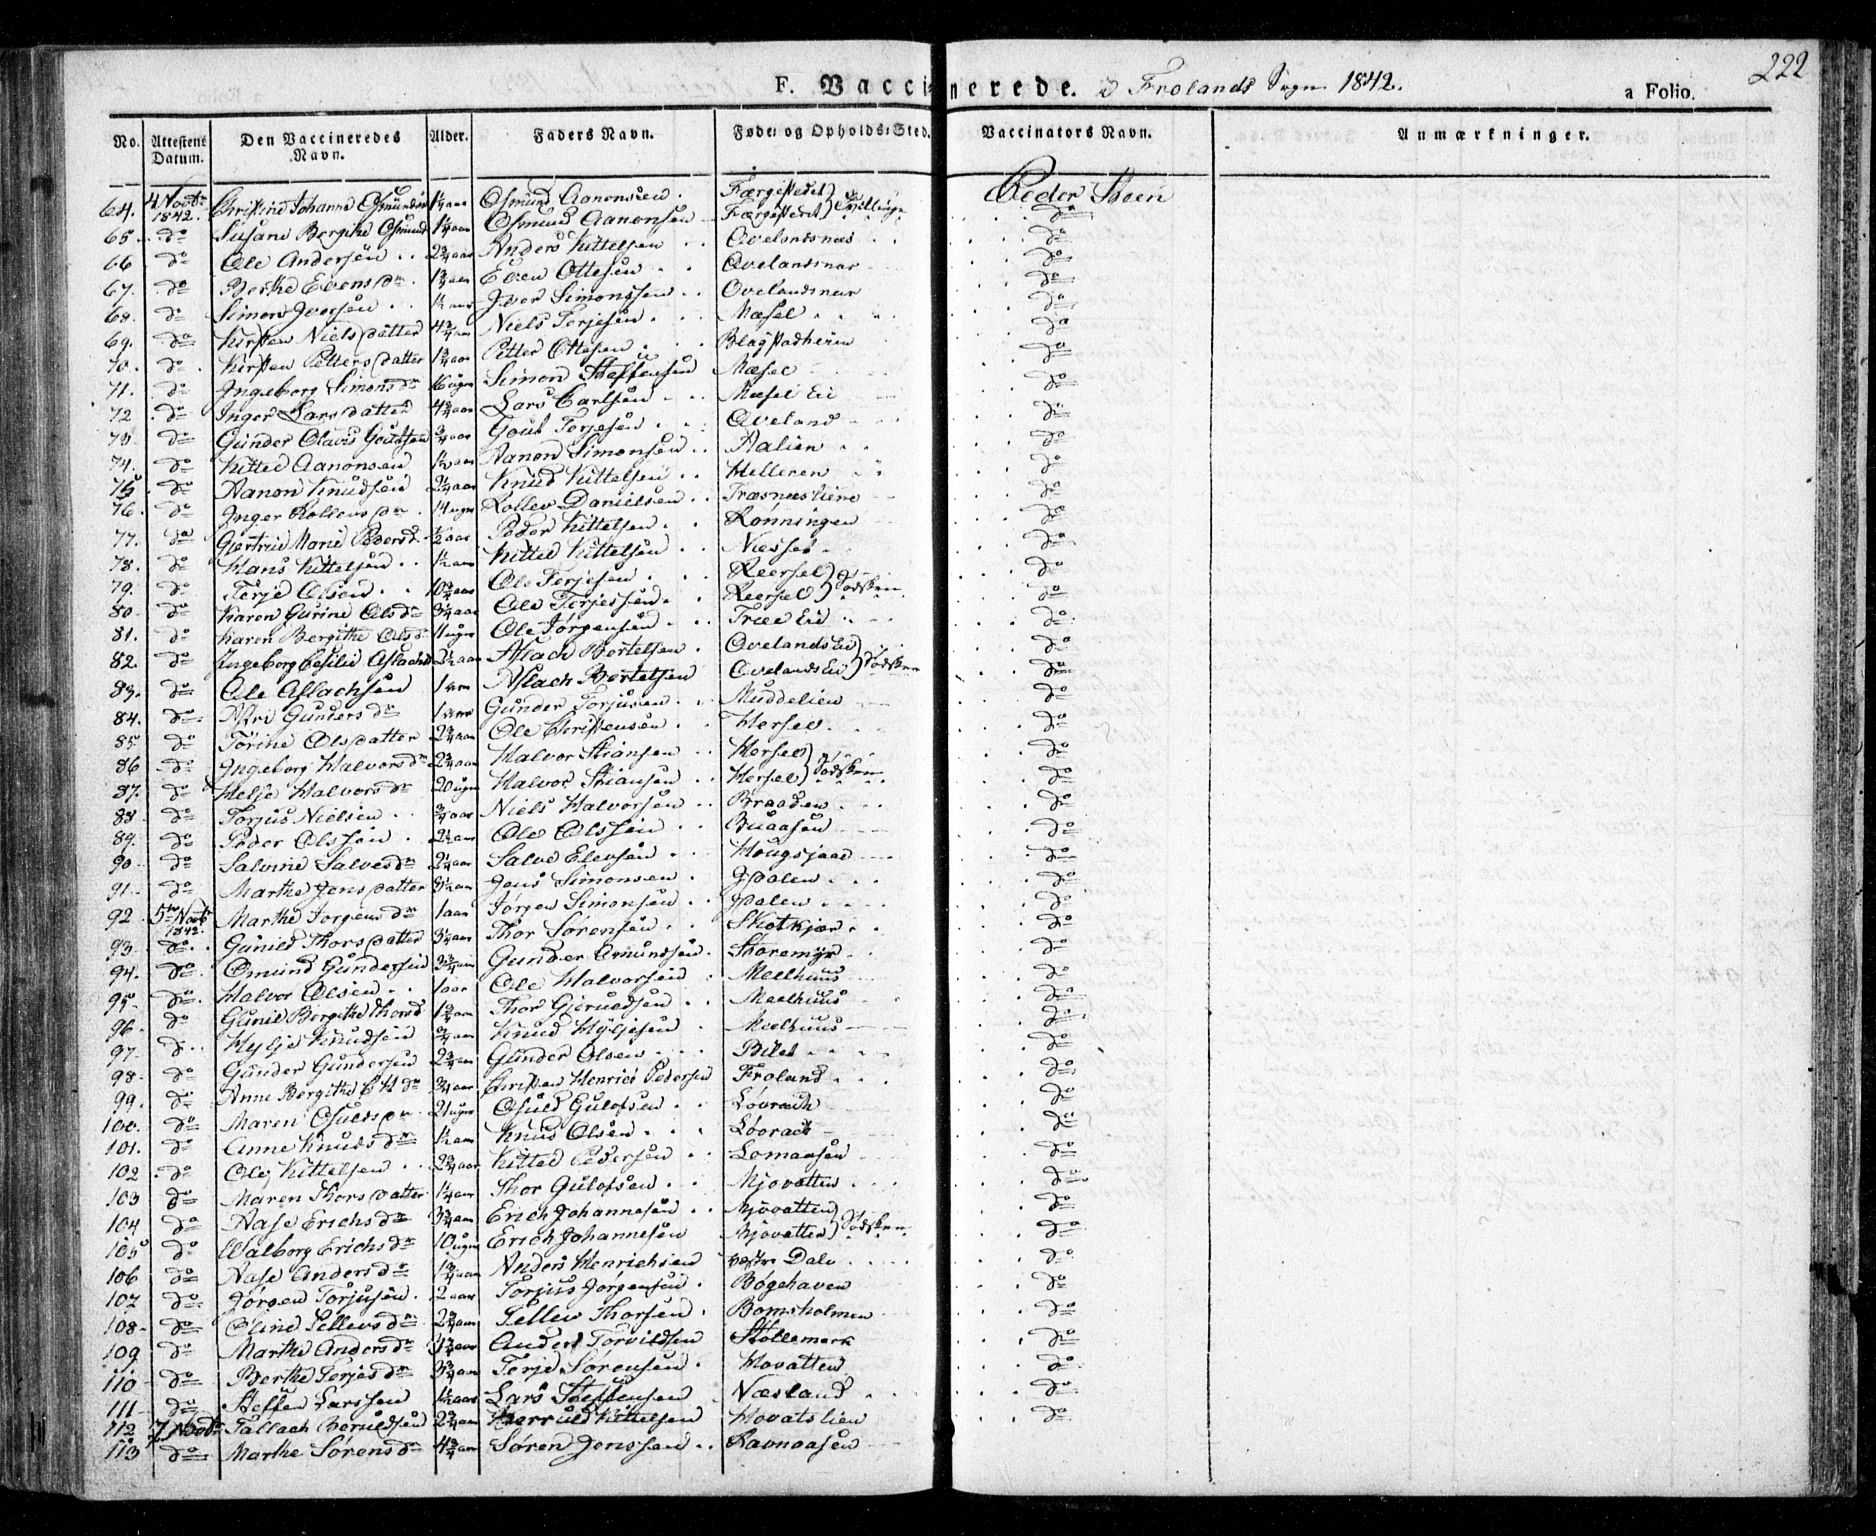 222
F. Vaccinerede. i Frolands Sogn 1842. a Folio.
No. Attestens Datum. Den Vaccineredes Navn. Alder. Faders Navn. Føde- og Opholds-Sted. Vaccinators Navn. Anmærkninger.
64. 4 Novbr 1842. Christine Johanne Osmunds 1¼ aar Osmund Aanonsen Færgestedet) Tvillinge Peder Steen
65. do Susane Bergithe Osmund 1¼ aar Osmund Aanonsen Færgestedet) do
66 do Ole Andersen 2¾ aar Anders Kittelsen Ovelandsnæs do
67. do Berthe Evensdr 1¾ aar Even Ottesen Ovelandsnæs do
68. do Simon Iversen ½ aar Iver Simonssen Ovelandsnæs do
69. do Kirsten Nielsdatter 4¾ aar Niels Terjesen Mæsel do
70. do Kirsten Pettersdatter 1¾ aar Petter Ottesen Blagstadheien do
71. do Ingeborg Simonsdr 16 uger Simon Steffensen Mæsel do
72 do Inger Larsdatter 4¾ aar Lars Carlsen Mæsel Eie do
73 do Gunder Olavus Goutsen ¾ aar Gout Terjesen Oveland do
74. do Kittel Aanonsen ½ aar Aanon Simonsen Dalien do
75. do Aanon Knudsen 2¼ aar Knud Kittelsen Helleren do
76. do Inger Rollevsdr 14 uger Rollev Danielsen Træsnæsliene do
77. do Gjertrud Marie Pedersd. ½ aar Peder Kittelsen Rønningen do
78. do Hans Kittelsen ½ aar Kittel Kittelsen Næsset do
79. do Terje Olsen 10¾ aar Ole Terjesen Reersel) Sødsken do
80. do Karen Gurine Olsdr 3¼ aar Ole Terjessen Reersel) do
81. do Karen Bergithe Olsd. 11 uger Ole Jørgensen Træe Eie do
82. do Ingeborg Cesilie Aslachsd 2½ aar Aslach Bertelsen Ovelands Eie) Sødsken do
83. do Ole Aslachsen 1 aar Aslach Bertelsen Ovelands Eie) do
84. do Asri Gundersdr 1 aar Gunder Torjusen Muddelien do
85 do Torine Olsdatter 2¾ aar Ole Christensen Hersel do
86 do Ingeborg Halvorsdr 2¾ aar Halvor Stiansen Hersel) Sødsken do
87. do Helje Halvorsdr 20 uger Halvor Stiansen Hersel) do
88 do Torjus Nielsen ¾ aar Niels Halvorsen Braaden do
89. do Peder Olssen 2½ aar Ole Olssen Buaasen do
90 do Salvine Salvesdr 2¼ aar Salve Elevsen Hougsjaae do
91 do Marthe Jensdatter 3½ aar Jens Simonsen Idalen do
92 5te Novb 1842. Marthe Jørgensdr 1 aar Jørgen Simonsen Idalen do
93 do Gunild Thorsdatter 3½ aar Thor Sørensen Skotkjær do
94. do Omund Gundersen 3¾ aar Gunder Omundsen Storemyr do
95. do Halvor Olsen 1 aar Ole Halvorsen Meelhuus do
96 do Gunil Bergithe Thorsd 1¾ aar Thor Gjeruldsen Meelhuus do
97 do Hylje Knudsen ¾ aar Knud Hyljesen Meelhuus do
98 do Gunder Gundersen 2¾ aar Gunder Olsen Bilet do
99. do Anne Bergithe C H dr ¾ aar Christen Henrich Pedersen Froland do
100. do Maren Osuldsdr 21 uger Osuld Gulofsen Løvrach do
101. do Anne Knudsdr ½ aar Knud Olsen Løvrach do
102 do Ole Kittelsen 2¾ aar Kittel Pedersen Lomaasen do
103 do Maren Thorsdatter 1¼ aar Thor Gulofsen Mjovatten do
104 do Aase Erichsdr 3¾ aar Erich Johannesen Mjovatten) Sødsken do
105 do Walborg Erichsdr 10 uger Erich Johannesen Mjovatten) do
106 do Aase Andersdr 1¾ aar Anders Henrichsen vestre Dale do
107 do Jørgen Torjusen 2 aar Torjus Jørgensen Bøgehaven do
108 do Oline Tellevsdr 2¾ aar Tellev Thorsen Bomsholmen do
109 do Marthe Andersdr 3¾ aar Anders Torvildsen Stollemark do
110 do Berthe Terjesdr 3¾ aar Terje Sørensen Hovatten do
111 do Steffen Larssen 1½ aar Lars Steffensen Næsland do
112 7 Novbr Tallach Beruldsen 2¾ aar Berruld Kittelsen Hovatslien do
113 do Marthe Sørensdr 4¾ aar Søren Jenssen Ravnaasen